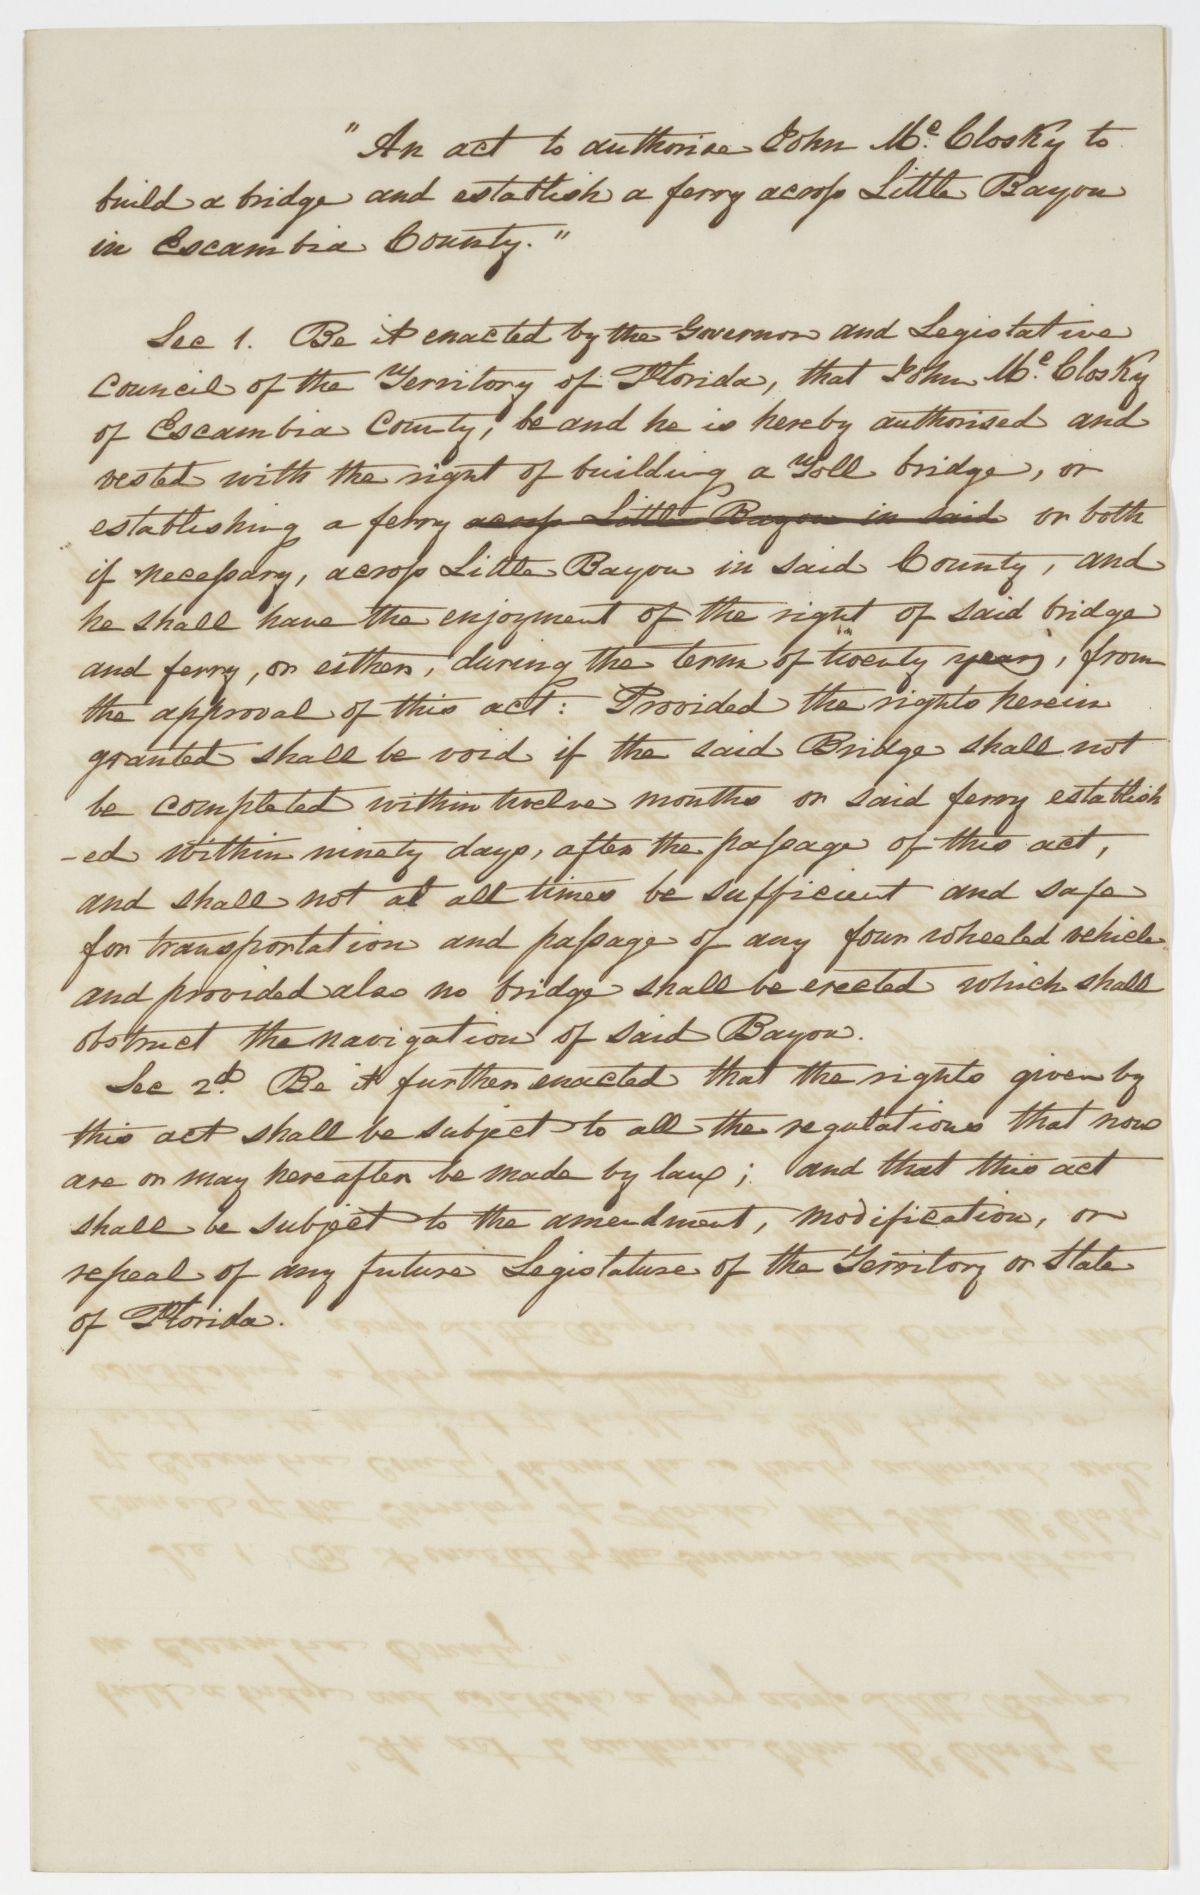 "An act to authorise John Mc. Closky to
build a bridge and establish a ferry across Little Bayou
in Escambia County."
Sec 1. Be it enacted by the Governor and Legislative
Council of the Territory of Florida, that John Mc. Closky
of Escambia County, be and he is hereby authorised and
vested with the right of building a Toll bridge, or
establishing a ferry across Little Bayou in said or both
if necessary, across Little Bayou in said County, and
he shall have the enjoyment of the right of said bridge
and ferry, or either, during the term of twenty years, from
the approval of this act: Provided the rights herein
granted shall be void if the said Bridge shall not
be completed within twelve months or said ferry establish
-ed within ninety days, after the passage of this act,
and shall not at all times be sufficient and safe
for transportation and passage of any four wheeled vehicle
and provided also no bridge shall be erected which shall
obstruct the navigation of said Bayou.
Sec 2d. Be it further enacted that the rights given by
this act shall be subject to all the regulations that now
are or may hereafter be made by law; and that this act
shall be subject to the amendment, modification, or
repeal of any future Legislature of the Territory or State
of Florida.